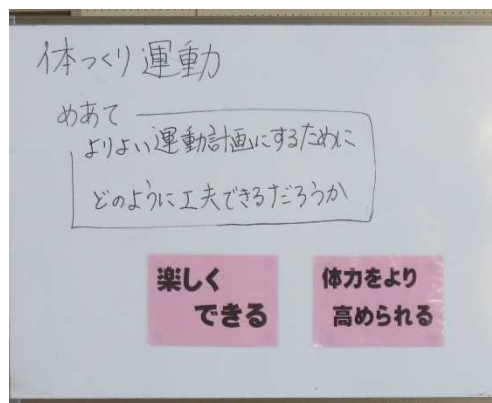 体つくり運動
めあて
よりよい運動計画にするために
どのように工夫できるだろうか
楽しく
できる
体力をより
高められる